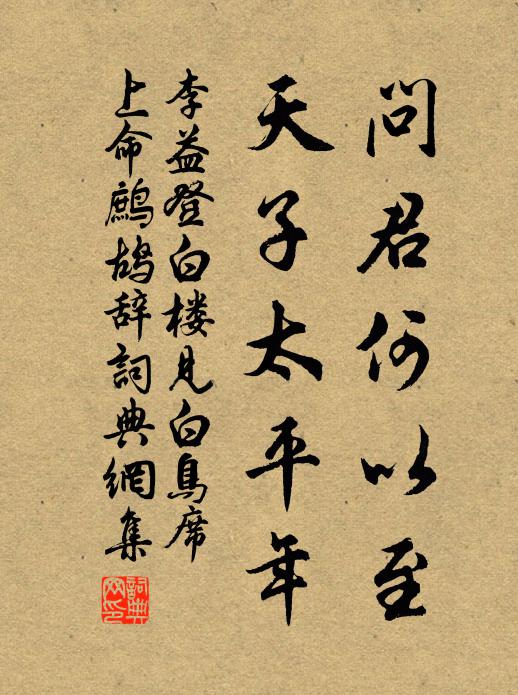 問君何以至
天子太平年
李益登白楼見白鳥席
上命鷓鴣辞詞典網集
詞典
网印